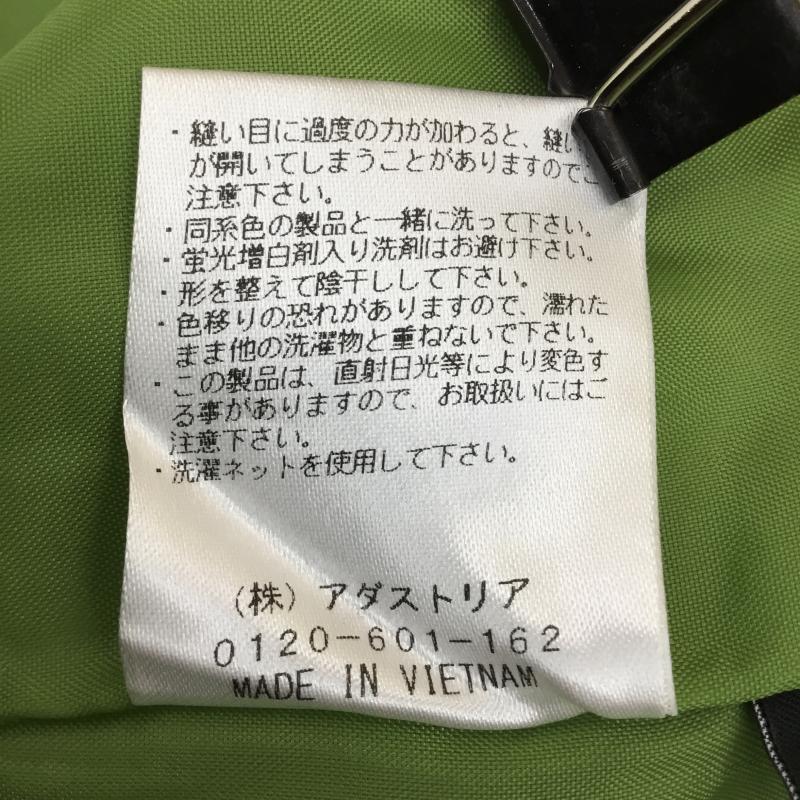 ・縫い目に過度の力が加わると、縫い
が開いてしまうことがありますのでご
注意下さい。
・同系色の製品と一緒に洗って下さい。
・蛍光増白剤入り洗剤はお避け下さい。
・形を整えて陰干しして下さい。
・色移りの恐れがありますので、濡れた
まま他の洗濯物と重ねないで下さい。
・この製品は、直射日光等により変色す
る事がありますので、お取扱いにはご
注意下さい。
・洗濯ネットを使用して下さい。
(株) アダストリア
0120-601-162
MADE IN VIETNAM